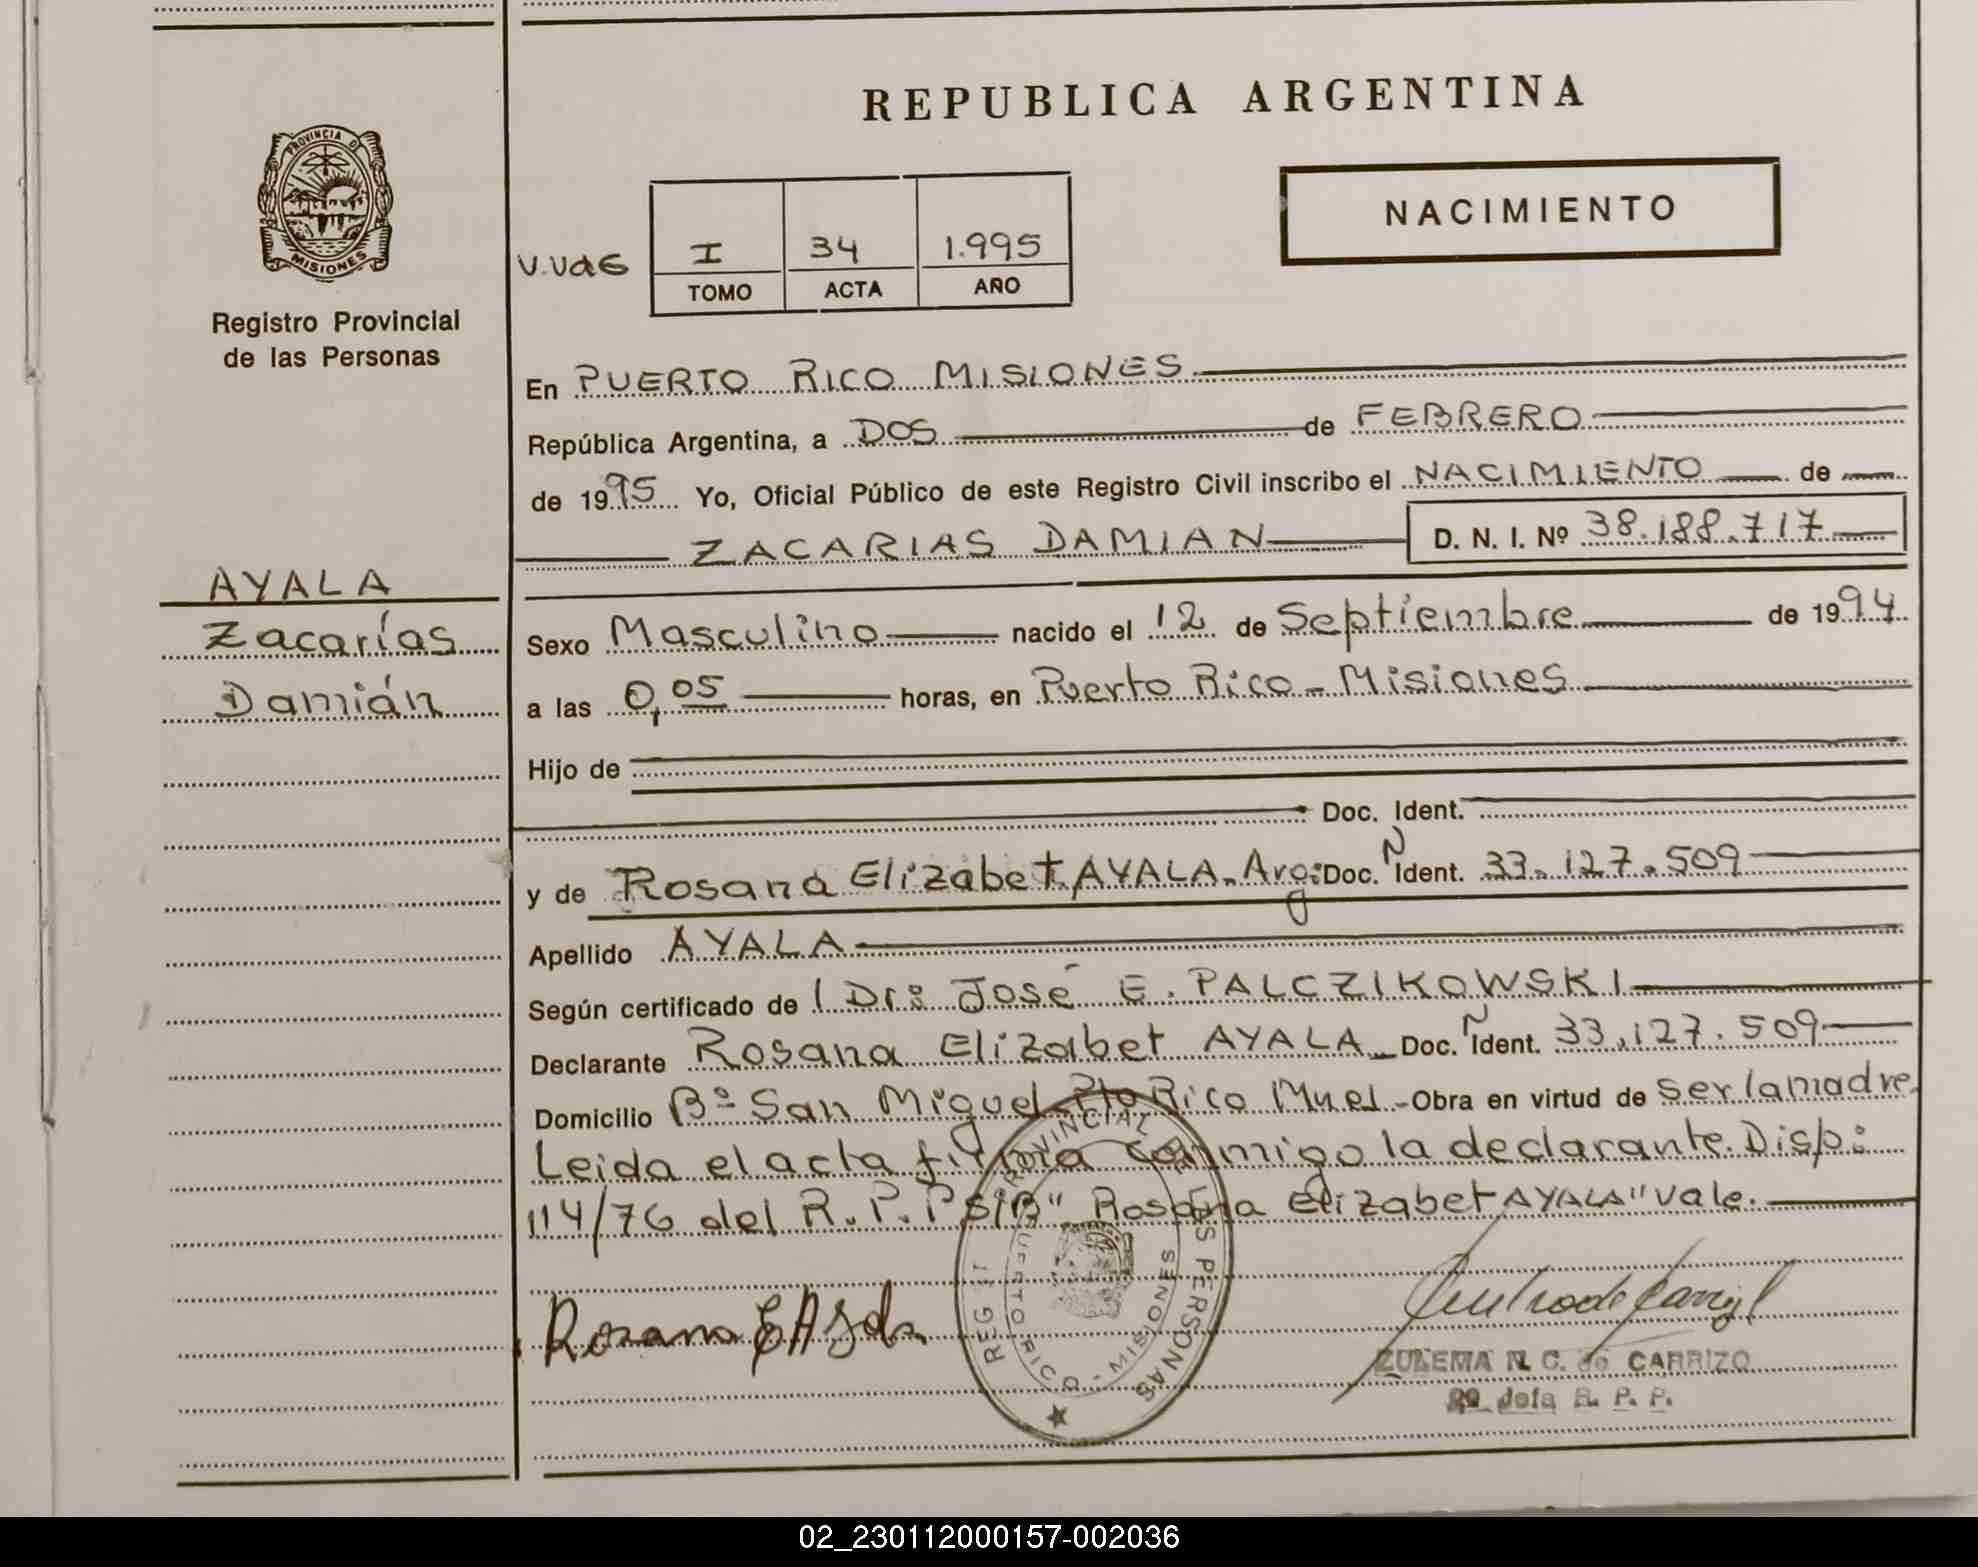 REPUBLICA ARGENTINA
PROVINCIA DE
MISIONES
Registro Provincial
de las Personas
NACIMIENTO
I 34 1.995
TOMO ACTA AÑO
En PUERTO RICO MISIONES
República Argentina, a DOS de FEBRERO
de 1995 Yo, Oficial Público de este Registro Civil inscribo el NACIMIENTO de
ZACARIAS DAMIAN D. N. I. Nº 38.188.717
AYALA
Zacarías
Damián
Sexo Masculino nacido el 12 de Septiembre de 1994
a las 0,05 horas, en Puerto Rico - Misiones
Hijo de
Doc. Ident.
y de Rosana Elizabet AYALA. Arg: Doc. N Ident. 33.127.509
Apellido AYALA
Según certificado de Dr: José E. PALCZIKOWSKI
Declarante Rosana Elizabet AYALA Doc. N Ident. 33.127.509
Domicilio Bº San Miguel Pto Rico - Obra en virtud de ser la madre.
Leida el acta firma conmigo la declarante. Disp:
114/76 del R.P.P S/B" Rosana Elizabet AYALA" Vale.
Rosana E Ayala
REG PROVINCIAL DE LAS PERSONAS
PUERTO RICO - MISIONES
ZULEMA N. C. de CARRIZO
2º Jefa R. P. P.
02_230112000157-002036